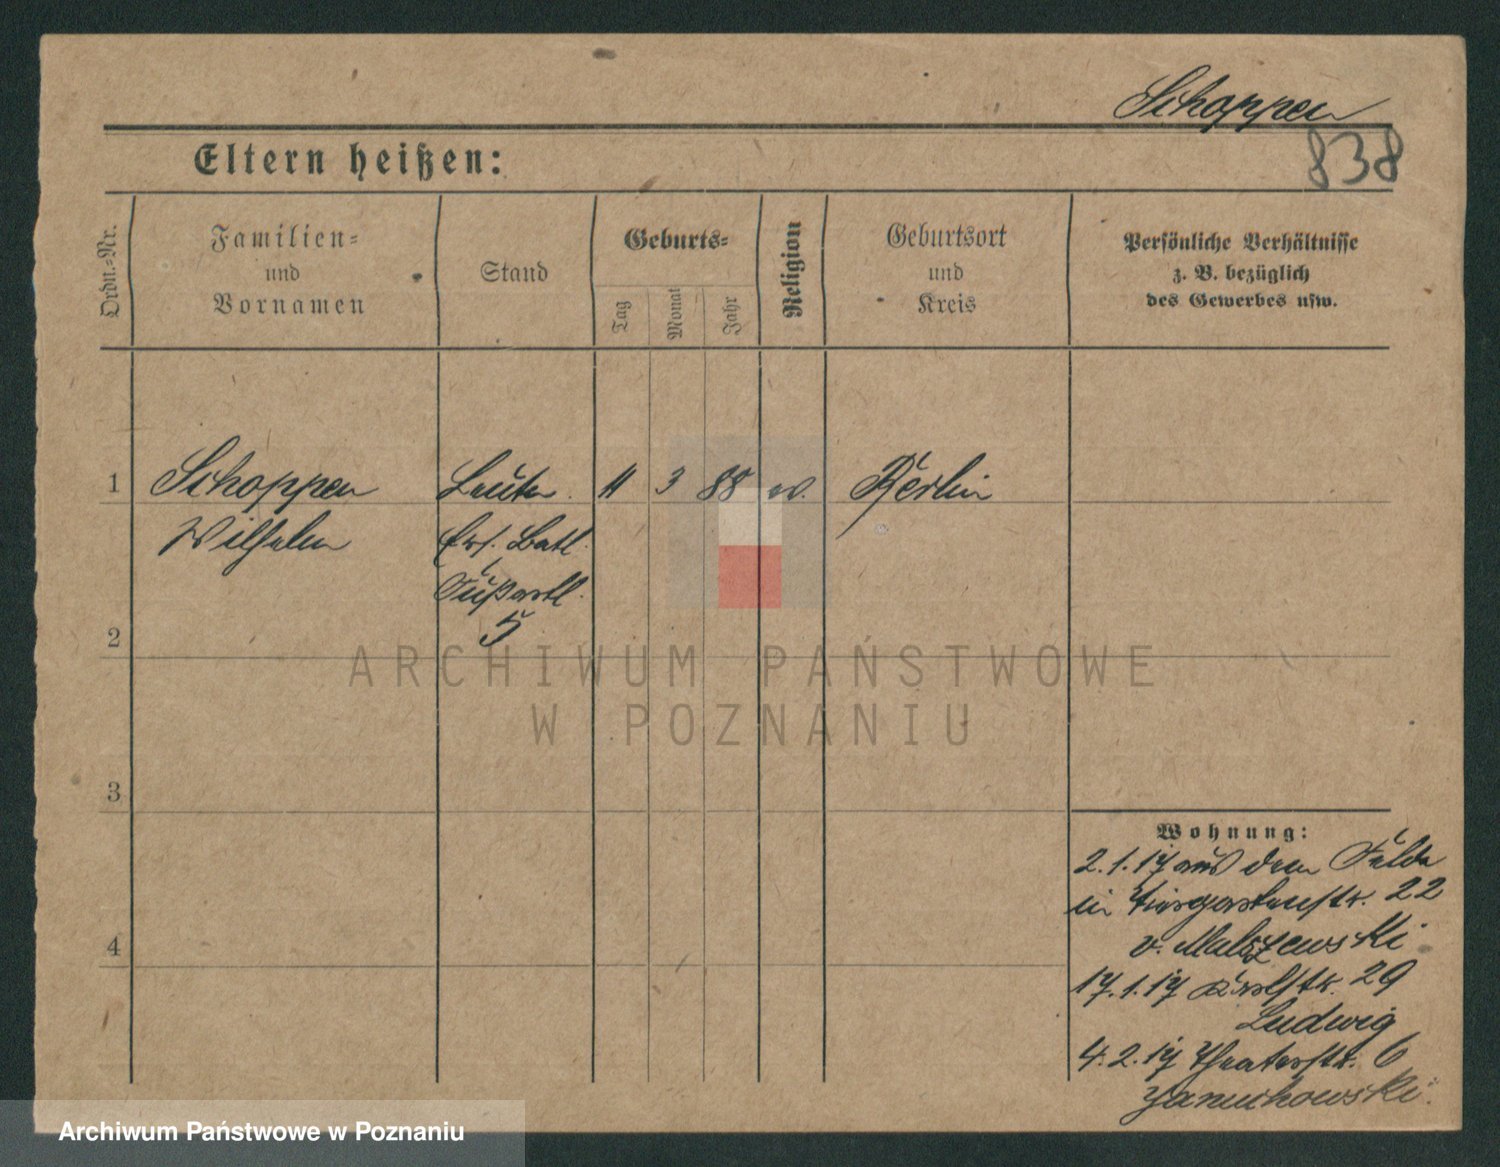 Schoppen
838
Eltern heißen:
Ordn.-Nr.
Familien=
und
Vornamen
Stand
Geburts=
Tag
Monat
Jahr
Religion
Geburtsort
und
Kreis
Persönliche Verhältnisse
z. B. bezüglich
des Gewerbes usw.
1 Schoppen Leutn. 11 3 88 ev. Berlin
Wilhelm Ers. Batl.
Fußartl.
5
2
3
4
Wohnung:
2.1.17 aus dem Felde
in Tiergartenstr. 22
v. Malszewski
17.1.17 Karlstr. 29
Ludwig
4.2.17 Theaterstr. 6
Januchowski.
ARCHIWUM PAŃSTWOWE
W POZNANIU
Archiwum Państwowe w Poznaniu